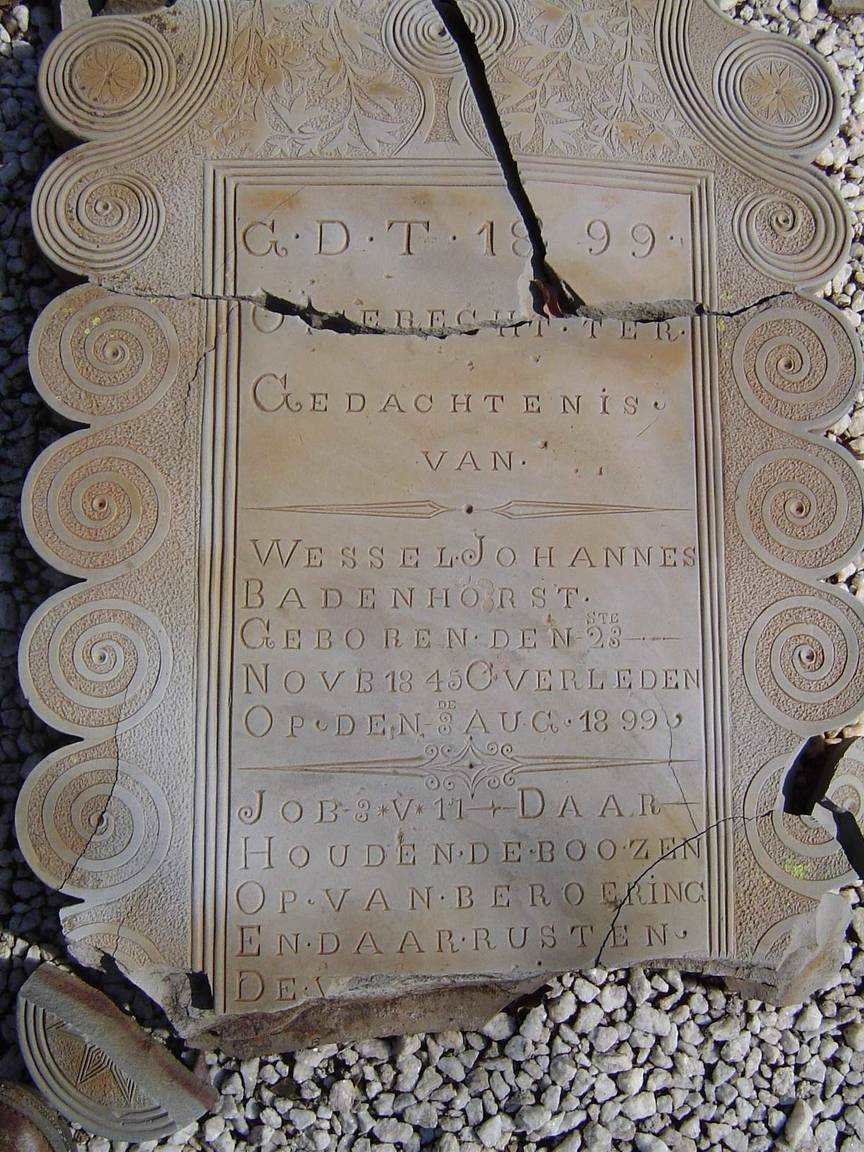 G·D·T·1899·
OPGERECHT·TER·
GEDACHTENIS·
VAN·
WESSEL·JOHANNES
BADENHORST·
GEBOREN·DEN 23STE
NOVB 1845 OVERLEDEN
OP·DEN 3DE AUG·1899
JOB·3*V*17—DAAR
HOUDEN·DE·BOOZEN
OP·VAN·BEROERING
EN·DAAR·RUSTEN
DE·